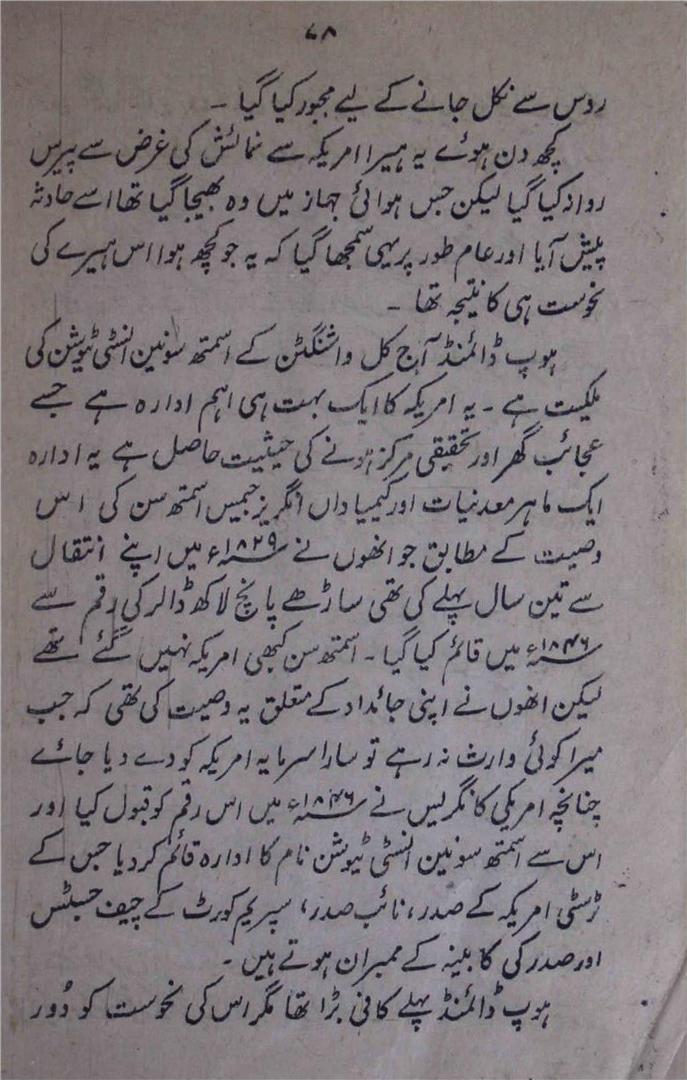 ۶۸
روس سے نکل جانے کے لیے مجبور کیا گیا ۔
کچھ دن ہوئے یہ ہیرا امریکہ سے نمائش کی غرض سے پیرس
روانہ کیا گیا لیکن جس ہوائی جہاز میں وہ بھیجا گیا تھا اسے حادثہ
پیش آیا اور عام طور پر یہی سمجھا گیا کہ یہ جو کچھ ہوا اس ہیرے کی
نحوست ہی کا نتیجہ تھا ۔
ہوپ ڈائمنڈ آج کل واشنگٹن کے اسمتھ سونین انسٹی ٹیوشن کی
ملکیت ہے ۔ یہ امریکہ کا ایک بہت ہی اہم ادارہ ہے جسے
عجائب گھر اور تحقیقی مرکز ہونے کی حیثیت حاصل ہے یہ ادارہ
ایک ماہر معدنیات اور کیمیا داں انگریز جیمس اسمتھ سن کی اس
وصیت کے مطابق جو انھوں نے ۱۸۲۹ء میں اپنے انتقال
سے تین سال پہلے کی تھی ساڑھے پانچ لاکھ ڈالر کی رقم سے
۱۸۴۶ء میں قائم کیا گیا ۔ اسمتھ سن کبھی امریکہ نہیں گئے تھے
لیکن انھوں نے اپنی جائداد کے متعلق یہ وصیت کی تھی کہ جب
میرا کوئی وارث نہ رہے تو سارا سرمایہ امریکہ کو دے دیا جائے
چنانچہ امریکی کانگریس نے ۱۸۴۶ء میں اس رقم کو قبول کیا اور
اس سے اسمتھ سونین انسٹی ٹیوشن نام کا ادارہ قائم کر دیا جس کے
ٹرسٹی امریکہ کے صدر، نائب صدر، سپریم کورٹ کے چیف جسٹس
اور صدر کی کابینہ کے ممبران ہوتے ہیں ۔
ہوپ ڈائمنڈ پہلے کافی بڑا تھا مگر اس کی نحوست کو دُور